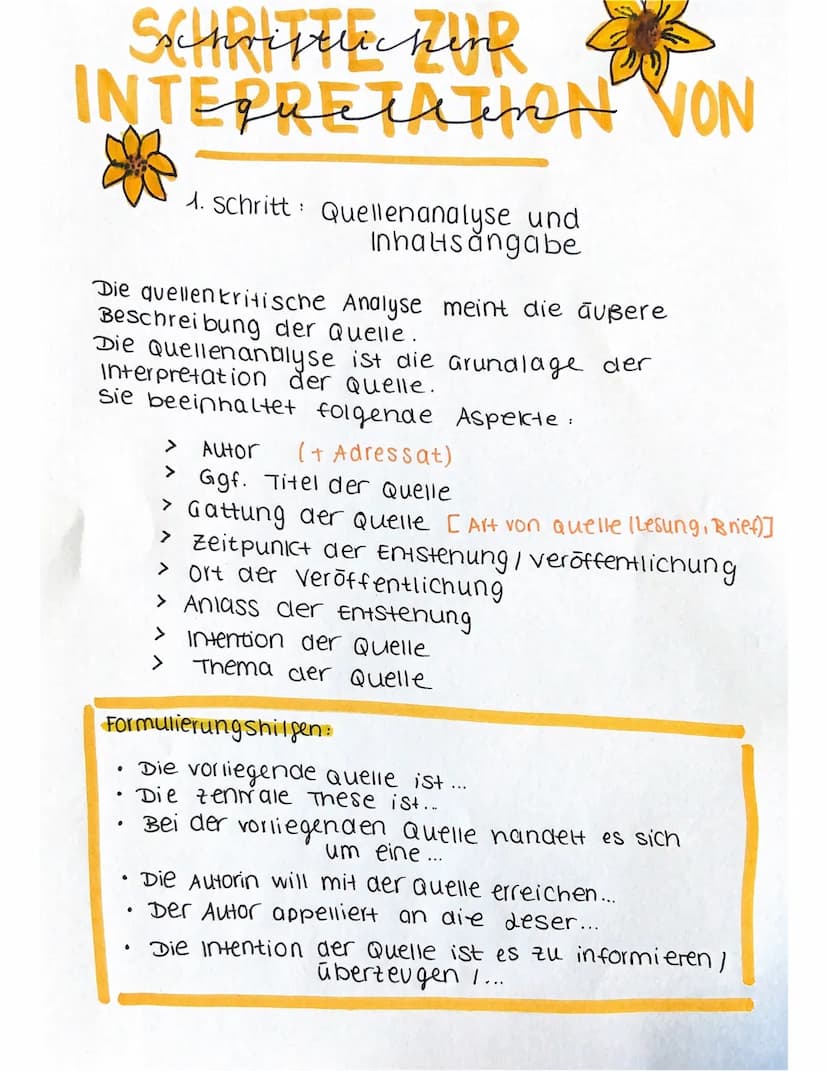 SCHRITTE ZUR
schriftlichen
INTEPRETATION VON
quellen
1. Schritt: Quellenanalyse und
Inhaltsangabe
Die quellenkritische Analyse meint die äußere
Beschreibung der Quelle.
Die Quellenanalyse ist die Grundlage der
Interpretation der Quelle.
Sie beeinhaltet folgende Aspekte:
> Autor (+ Adressat)
> Ggf. Titel der Quelle
> Gattung der Quelle [Art von Quelle (Lesung, Brief)]
> Zeitpunkt der Entstehung / Veröffentlichung
> Ort der Veröffentlichung
> Anlass der Entstehung
> Intention der Quelle
> Thema der Quelle
Formulierungshilfen:
• Die vorliegende Quelle ist ...
• Die zentrale These ist...
• Bei der vorliegenden Quelle handelt es sich
um eine ...
• Die Autorin will mit der Quelle erreichen...
• Der Autor appelliert an die Leser...
• Die Intention der Quelle ist es zu informieren /
überzeugen / ...